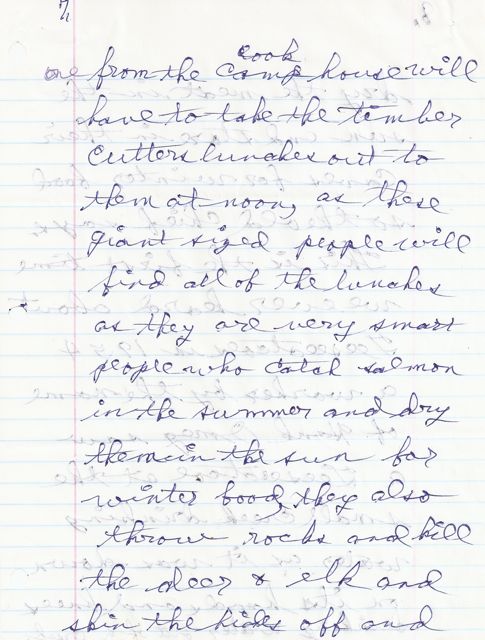 7
one from the camp cook house will
have to take the timber
cutters lunches out to
them at noon, as these
giant sized people will
find all of the lunches
as they are very smart
people who catch salmon
in the summer and dry
them in the sun for
winter food, they also
throw rocks and kill
the deer & elk and
skin the hides off and